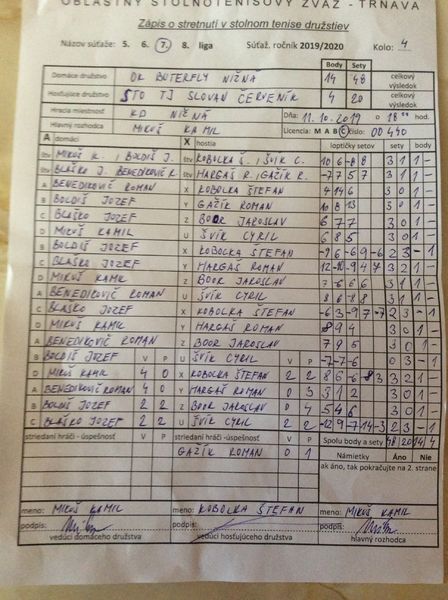 OBLASTNÝ STOLNOTENISOVÝ ZVÄZ - TRNAVA
Zápis o stretnutí v stolnom tenise družstiev
Názov súťaže: 5. 6. 7. 8. liga Súťaž. ročník 2019/2020 Kolo: 4
Body Sety
Domáce družstvo OK BUTERFLY NIŽNA 14 48 celkový výsledok
Hosťujúce družstvo STO TJ SLOVAN ČERVENÍK 4 20 celkový výsledok
Hracia miestnosť KD NIŽNÁ Dňa: 11. 10. 2019 o 18 00 hod.
Hlavný rozhodca MIKUŠ KAMIL Licencia: M A B C číslo: 00 440
A domáci X hostia loptičky setov sety body
štv MIKUŠ K. / BOLDIŠ J. štv KOBOLKA Š. / ŠVIK C. 10 6 -8 8 3 1 1 -
štv BLAŠKO J. BENEDIKOVIČ R. štv MARGAŠ R. / GAŽIK R. -7 7 5 7 3 1 1 -
A BENEDIKOVIČ ROMAN X KOBOLKA ŠTEFAN 4 14 6 3 0 1 -
B BOLDIŠ JOZEF Y GAŽIK ROMAN 10 8 13 3 0 1 -
C BLAŠKO JOZEF Z BOOR JAROSLAV 6 7 7 3 0 1 -
D MIKUŠ KAMIL U ŠVIK CYRIL 6 8 5 3 0 1 -
B BOLDIŠ JOZEF X KOBOLKA ŠTEFAN -9 6 -6 9 -6 2 3 - 1
C BLAŠKO JOZEF Y MARGAŠ ROMAN 12 -10 -9 4 7 3 2 1 -
D MIKUŠ KAMIL Z BOOR JAROSLAV 7 6 6 6 3 1 1 -
A BENEDIKOVIČ ROMAN U ŠVIK CYRIL 8 6 -8 8 3 1 1 -
C BLAŠKO JOZEF X KOBOLKA ŠTEFAN -6 3 -9 7 -7 2 3 - 1
D MIKUŠ KAMIL Y MARGAŠ ROMAN 8 9 4 3 0 1 -
A BENEDIKOVIČ ROMAN Z BOOR JAROSLAV 7 9 5 3 0 1 -
B BOLDIŠ JOZEF V P U ŠVIK CYRIL V P -7 -7 -6 0 3 - 1
D MIKUŠ KAMIL 4 0 X KOBOLKA ŠTEFAN 2 2 8 6 -6 -8 3 3 2 1 -
A BENEDIKOVIČ ROMAN 4 0 Y MARGAŠ ROMAN 0 3 3 12 3 0 1 -
B BOLDIŠ JOZEF 2 2 Z BOOR JAROSLAV 0 4 5 4 6 3 0 1 -
C BLAŠKO JOZEF 2 2 U ŠVIK CYRIL 2 2 -12 9 7 -14 -3 2 3 - 1
striedaní hráči - úspešnosť V P striedaní hráči - úspešnosť V P Spolu body a sety 48 20 14 4
GAŽIK ROMAN 0 1 Námietky Áno Nie
ak áno, tak pokračujte na 2. strane
meno: MIKUŠ KAMIL meno: KOBOLKA ŠTEFAN meno: MIKUŠ KAMIL
podpis: podpis: podpis:
vedúci domáceho družstva vedúci hosťujúceho družstva hlavný rozhodca